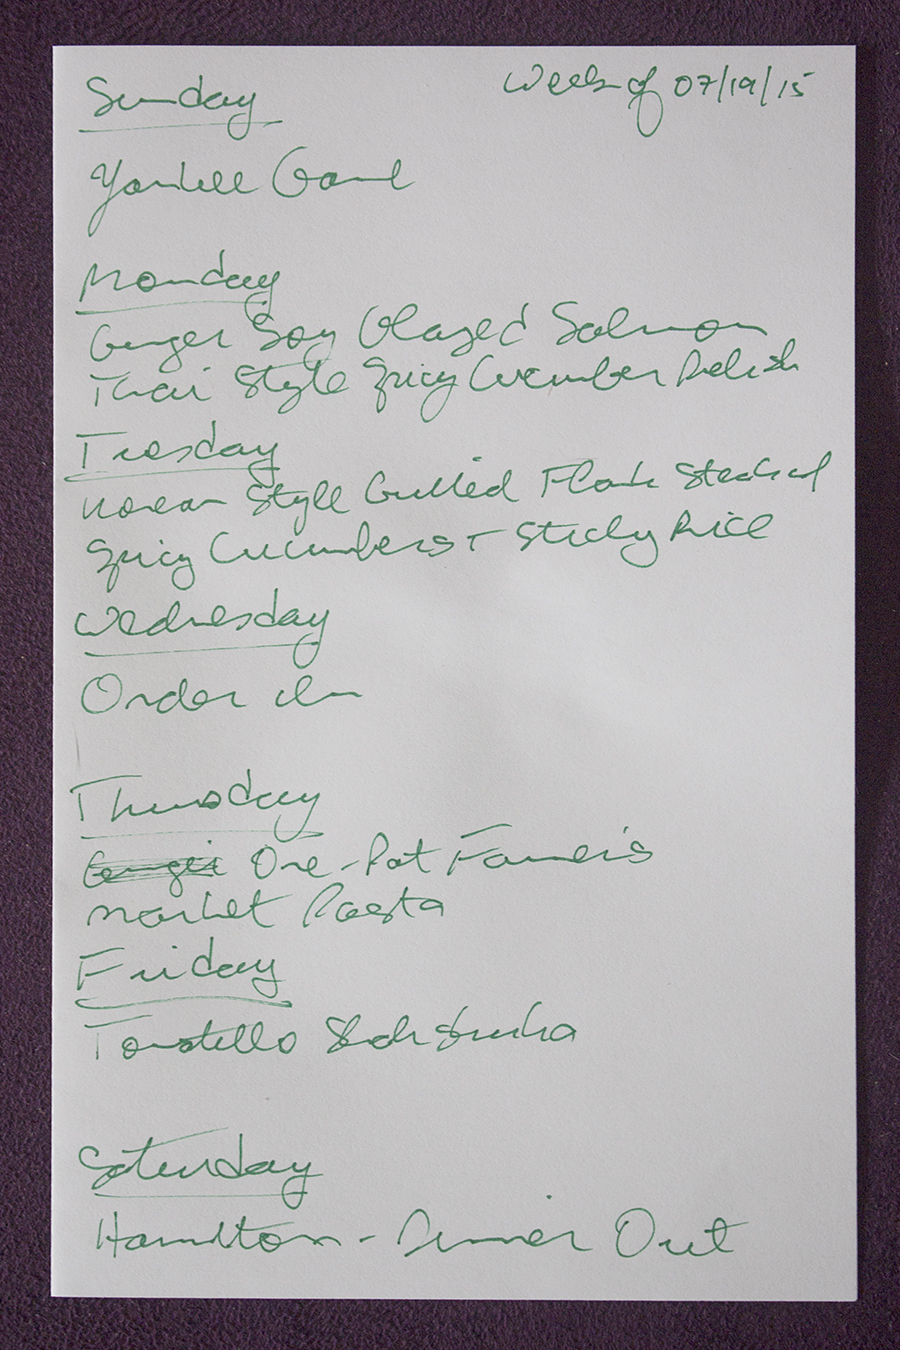 Sunday
Week of 07/19/15
Yankee Game
Monday
Ginger Soy Glazed Salmon
Thai Style Spicy Cucumber Relish
Tuesday
Korean Style Grilled Flank Steak w/
Spicy Cucumbers + Sticky Rice
Wednesday
Order In
Thursday
One-Pot Farmer's
Market Pasta
Friday
Saturday
Hamilton - Dinner Out